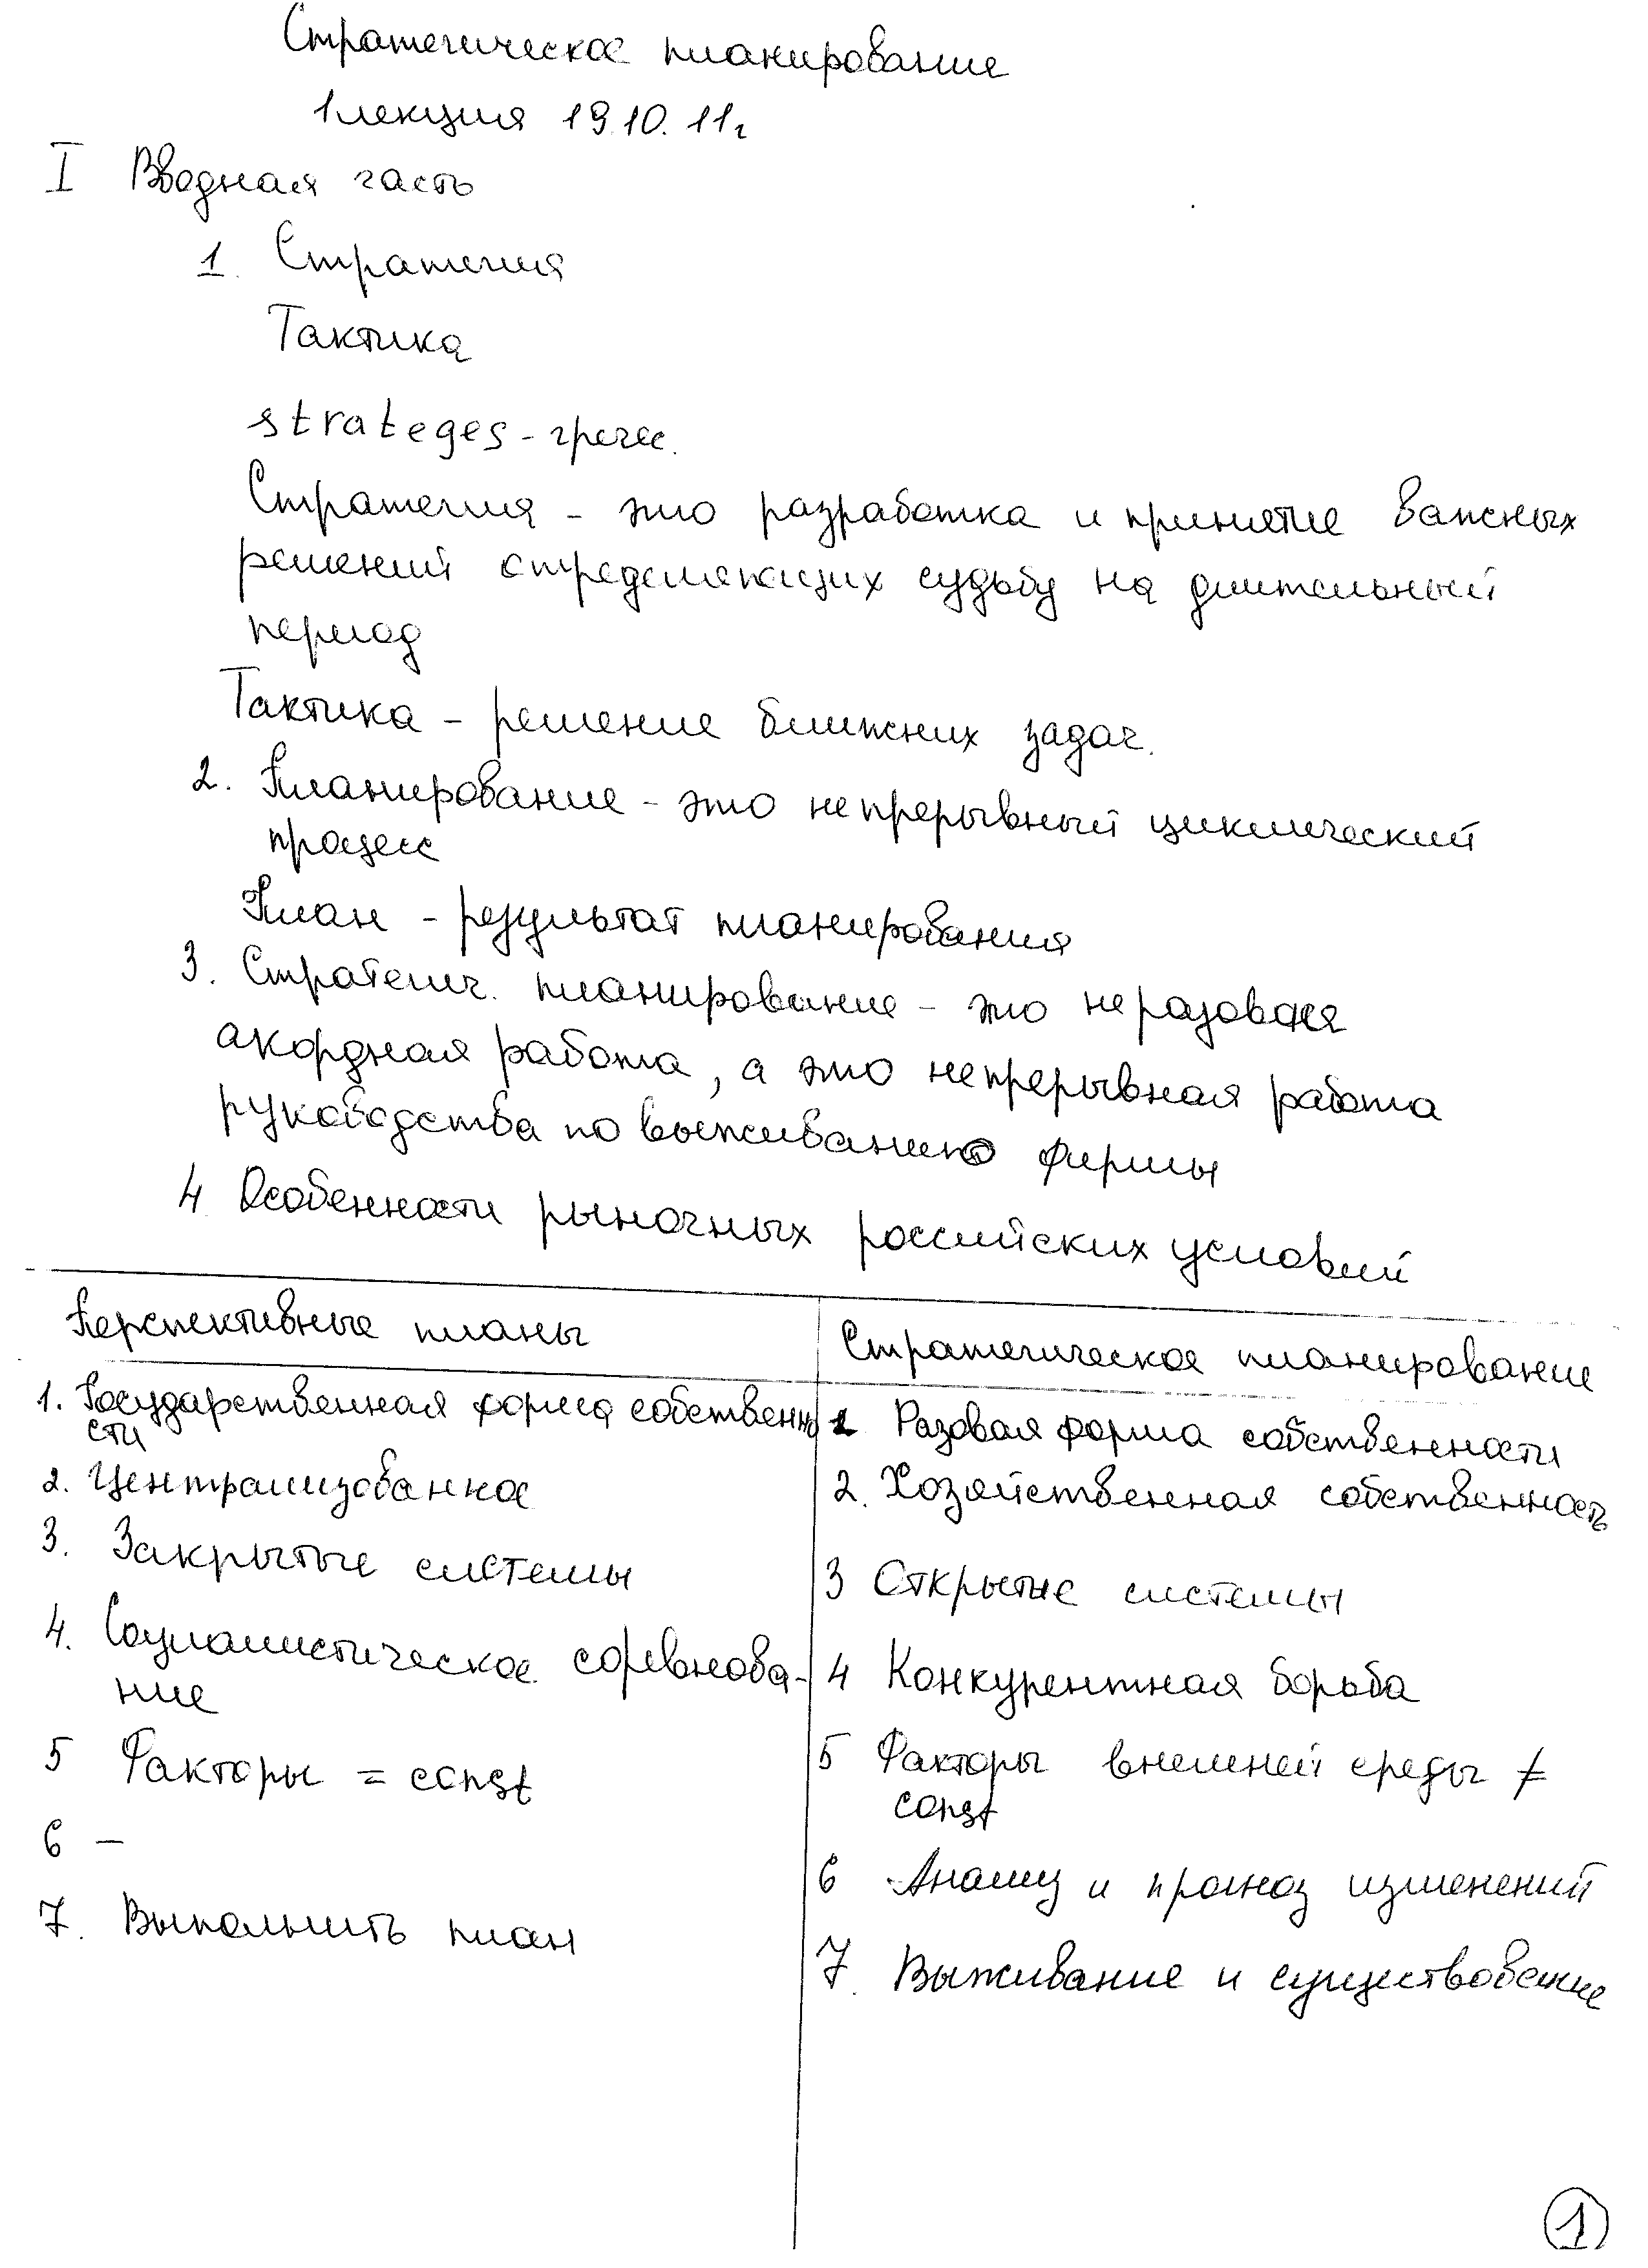 Стратегическое планирование
1 лекция 19.10.11г
I Вводная часть
1. Стратегия
Тактика
strateges - гречес.
Стратегия - это разработка и принятие важных
решений определяющих судьбу на длительный
период
Тактика - решение ближних задач.
2. Планирование - это непрерывный циклический
процесс
План - результат планирования
3. Стратегич. планирование - это не разовая
акордная работа, а это непрерывная работа
руководства по выживанию фирмы
4 Особенности рыночных российских условий
Перспективные планы
Стратегическое планирование
1. Государственная форма собственно
сти
1 Разовая форма собственности
2. Централизованное
2. Хозяйственная собственность
3. Закрытые системы
3 Открытые системы
4. Социалистическое соревнова-
ние
4 Конкурентная борьба
5 Факторы = const
5 Факторы внешней среды ≠
const
6 —
6 Анализ и прогноз изменений
7. Выполнить план
7. Выживание и существование
1